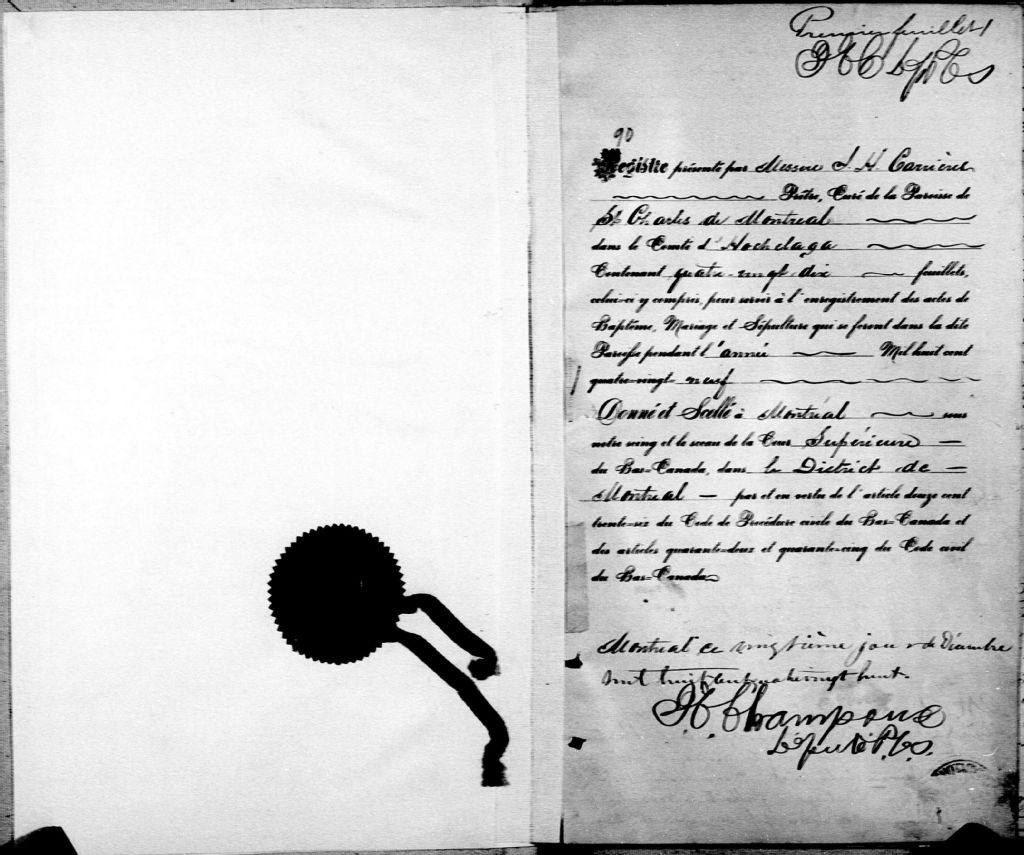 Premier feuillet
90
Registre présenté par Messire J. H. Carrières
Prêtre, Curé de la Paroisse de
St Charles de Montreal
dans le Comté d'Hochelaga
Contenant quatre-vingt dix feuillets,
celui-ci y compris, pour servir à l'enregistrement des actes de
Baptême, Mariage et Sépulture qui se feront dans la dite
Paroisse pendant l'année Mil huit cent
quatre-vingt-neuf
Donné et Scellé à Montréal sous
notre seing et le sceau de la Cour Supérieure
du Bas-Canada, dans le District de
Montreal par et en vertu de l'article douze cent
trente-six du Code de Procédure civile du Bas-Canada et
des articles quarante-deux et quarante-cinq du Code civil
du Bas-Canada
Montreal ce vingtième jour de Décembre
mil huit cent quatre vingt huit.
H. Champoux
Député P.C.S.